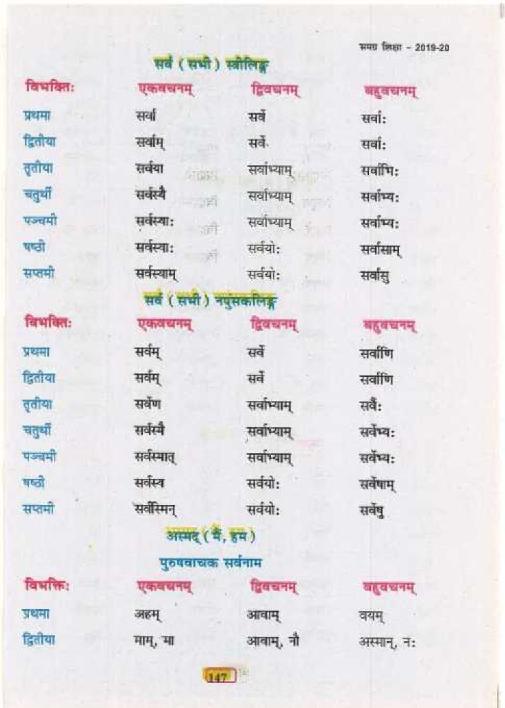 समग्र शिक्षा - 2019-20
सर्व ( सभी ) स्त्रीलिङ्ग
विभक्तिः एकवचनम् द्विवचनम् बहुवचनम्
प्रथमा सर्वा सर्वे सर्वाः
द्वितीया सर्वाम् सर्वे सर्वाः
तृतीया सर्वया सर्वाभ्याम् सर्वाभिः
चतुर्थी सर्वस्यै सर्वाभ्याम् सर्वाभ्यः
पञ्चमी सर्वस्याः सर्वाभ्याम् सर्वाभ्यः
षष्ठी सर्वस्याः सर्वयोः सर्वासाम्
सप्तमी सर्वस्याम् सर्वयोः सर्वासु
सर्व ( सभी ) नपुंसकलिङ्ग
विभक्तिः एकवचनम् द्विवचनम् बहुवचनम्
प्रथमा सर्वम् सर्वे सर्वाणि
द्वितीया सर्वम् सर्वे सर्वाणि
तृतीया सर्वेण सर्वाभ्याम् सर्वैः
चतुर्थी सर्वस्मै सर्वाभ्याम् सर्वेभ्यः
पञ्चमी सर्वस्मात् सर्वाभ्याम् सर्वेभ्यः
षष्ठी सर्वस्य सर्वयोः सर्वेषाम्
सप्तमी सर्वस्मिन् सर्वयोः सर्वेषु
अस्मद् ( मैं, हम )
पुरुषवाचक सर्वनाम
विभक्तिः एकवचनम् द्विवचनम् बहुवचनम्
प्रथमा अहम् आवाम् वयम्
द्वितीया माम्, मा आवाम्, नौ अस्मान्, नः
147